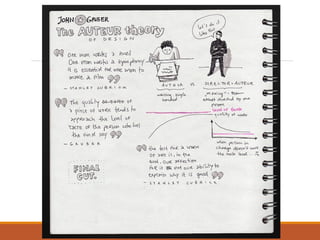 JOHN GRUBER
The AUTEUR theory
OF DESIGN
Let's do it
like this
one man writes a novel
One man writes a symphony
It is essential for one man to
make a film
— STANLEY KUBRICK
AUTEUR VS DIRECTOR = AUTEUR
writing single
handed
"Making": team
effort directed by one
person
The quality
a piece of work tends to
approach the level of
taste of the person who has
the final say
— GRUBER
level of taste
quality of work
when person in
charge doesn't have
the taste level
FINAL
CUT.
the test for a work
of art is, in the
end, our affection
for it not our ability to
explain why it is good
— STANLEY KUBRICK